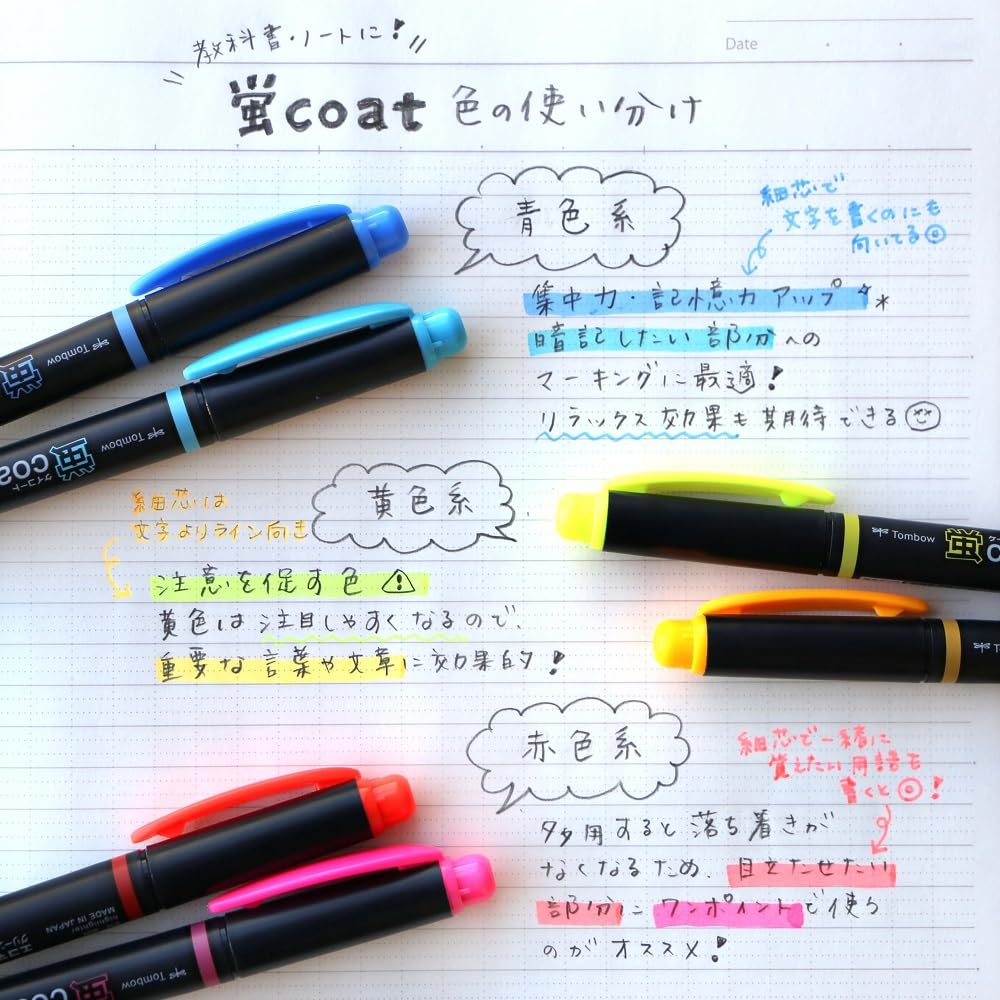 教科書・ノートに!
Date
蛍coat 色の使い分け
青色系
細芯で
文字を書くのにも
向いてる◎
集中力・記憶力アップ
暗記したい部分への
マーキングに最適!
リラックス効果も期待できる
Tombow
蛍
Tombow
蛍 coa
ケイコート
黄色系
細芯は
文字よりライン向き
注意を促す色
黄色は注目しやすくなるので、
重要な言葉や文章に効果的!
Tombow
蛍
赤色系
細芯で一緒に
覚えたい用語も
書くと◎!
多用すると落ち着きが
なくなるため、目立たせたい
部分にワンポイントで使う
のがオススメ!
highlighter
MADE IN JAPAN
Tombow
蛍